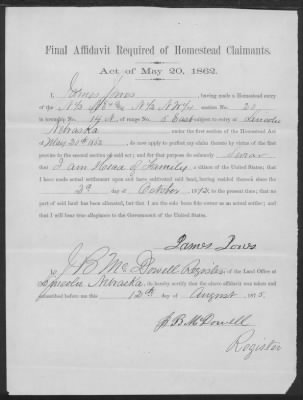 Final Affidavit Required of Homestead Claimants.
Act of May 20, 1862.
I, James Ives, having made a Homestead entry
of the N½ NE¼ & N½ NW¼ section No. 20,
in township No. 14 N. of range No. 5 East subject to entry at Lincoln
Nebraska under the first section of the Homestead Act
of May 20th 1862, do now apply to perfect my claim thereto by virtue of the first
proviso to the second section of said act; and for that purpose do solemnly Swear
that I am Head of Family, a citizen of the United States; that
I have made actual settlement upon and have cultivated said land, having resided thereon since the
2d day of October, 1872, to the present time; that no
part of said land has been alienated, but that I am the sole bona fide owner as an actual settler; and
that I will bear true allegiance to the Government of the United States.
James Ives
I, J. B. McDowell Register of the Land Office at
Lincoln Nebraska, do hereby certify that the above affidavit was taken and
subscribed before me this 12th day of August 1875.
J. B. McDowell
Register